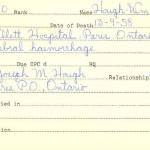 O. Rank Name Haugh Wm
Date of Death 13-9-58
llett Hospital, Paris Ontario
ebral haemorrhage
Due CPC d HQ
Joseph M. Haugh Relationship
ris P.O., Ontario
ried in